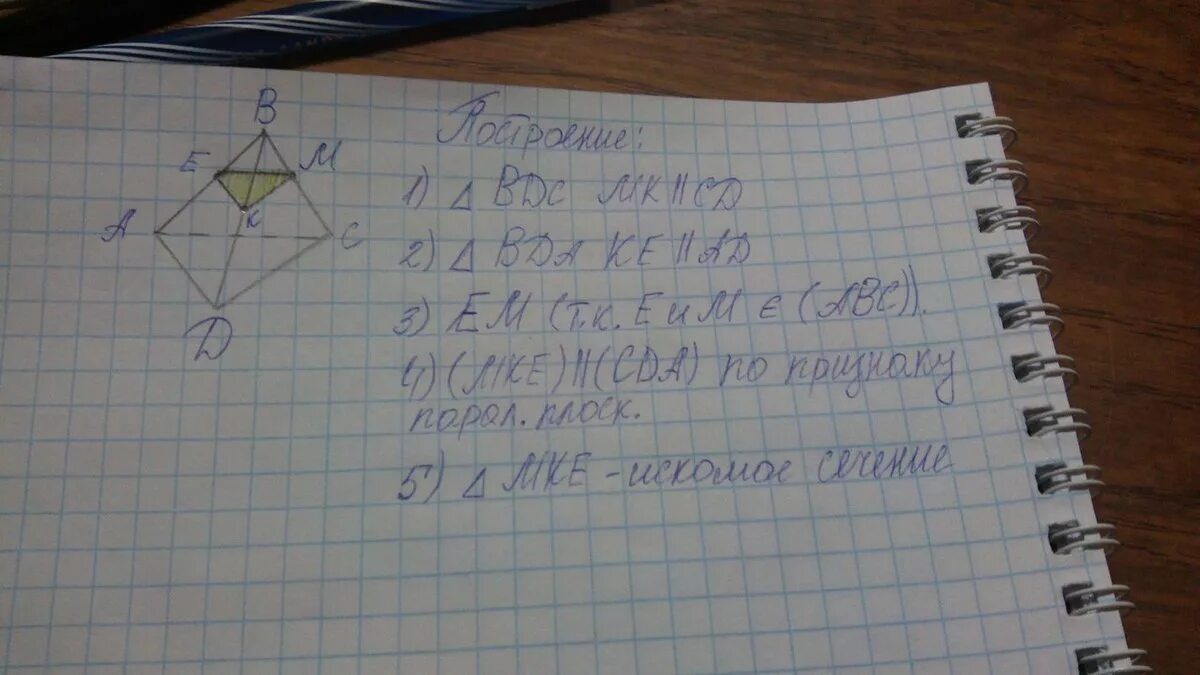 B
E
M
A
K
C
D
Построение:
1) △ BDC MK || CD
2) △ BDA KE || AD
3) EM (т.к. E и M ∈ (ABC)).
4) (MKE) || (CDA) по признаку
парал. плоск.
5) △ MKE - искомое сечение